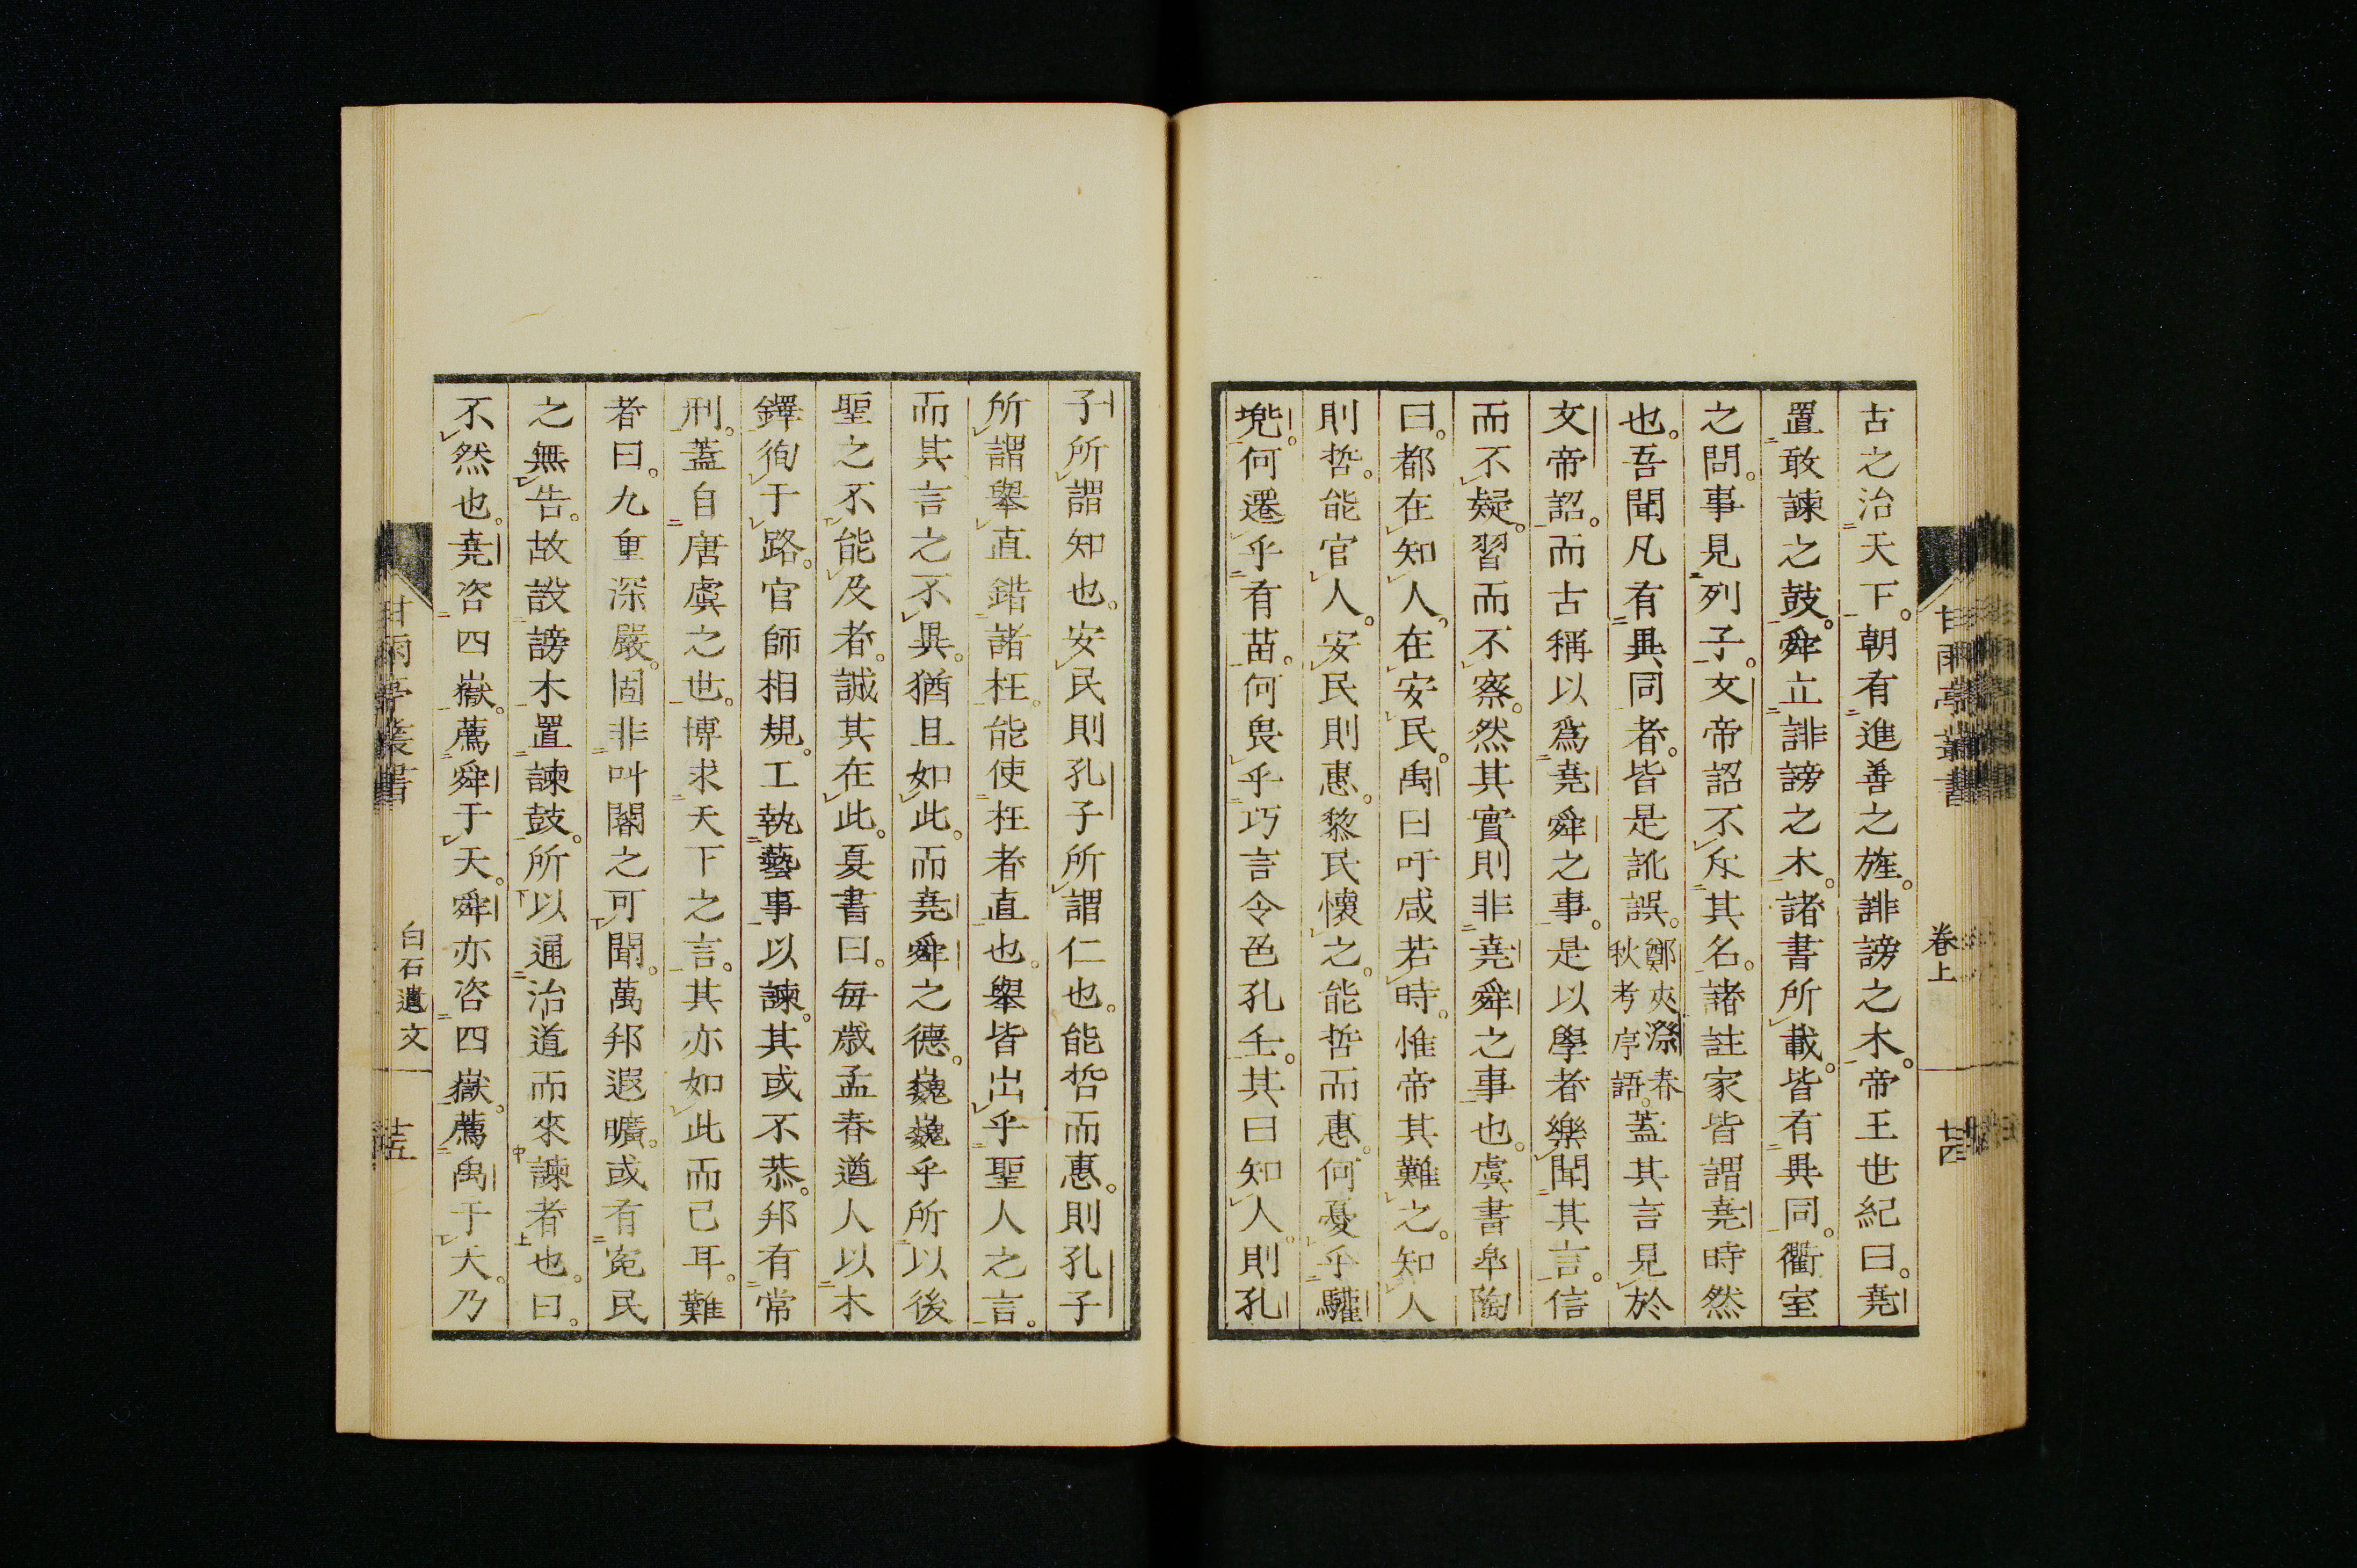 古之治天下。朝有進善之旌。誹謗之木。帝王世紀曰。堯
置敢諫之鼓。舜立誹謗之木。諸書所載。皆有異同。衢室
之問。事見列子。文帝詔不斥其名。諸註家皆謂堯時然
也。吾聞凡有異同者。皆是訛誤。鄭夾漈春秋考序語。蓋其言見於
文帝詔。而古稱以爲堯舜之事。是以學者樂聞其言。信
而不疑。習而不察。然其實則非堯舜之事也。虞書皐陶
曰。都在知人。在安民。禹曰吁咸若時。惟帝其難之。知人
則哲。能官人。安民則惠。黎民懷之。能哲而惠。何憂乎驩
兠。何遷乎有苗。何畏乎巧言令色孔壬。其曰知人。則孔
甘雨亭叢書
卷上
十四
子所謂知也。安民則孔子所謂仁也。能哲而惠。則孔子
所謂舉直錯諸枉。能使枉者直也。舉皆出乎聖人之言。
而其言之不異。猶且如此。而堯舜之德。巍巍乎所以後
聖之不能及者。誠其在此。夏書曰。每歲孟春遒人以木
鐸徇于路。官師相規。工執藝事以諫。其或不恭。邦有常
刑。蓋自唐虞之世。博求天下之言。其亦如此而已耳。難
者曰。九重深嚴。固非叫閽之可聞。萬邦遐曠。或有寃民
之無告。故設謗木置諫鼓。所以通治道而來諫者也。曰。
不然也。堯咨四嶽。薦舜于天。舜亦咨四嶽。薦禹于天。乃
甘雨亭叢書
白石遺文
十五